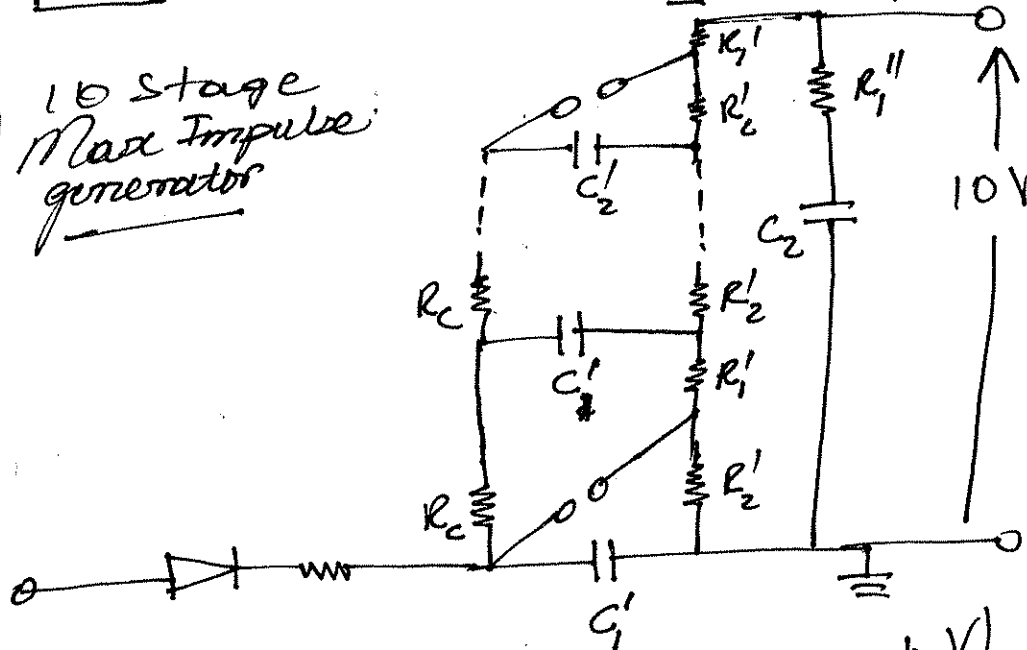 10 Stage
Max Impulse
generator
R₁'
R₂'
R₁''
C₂'
C₂
10V
R_c
R₂'
C₁'
R₁'
R_c
R₂'
C₁'